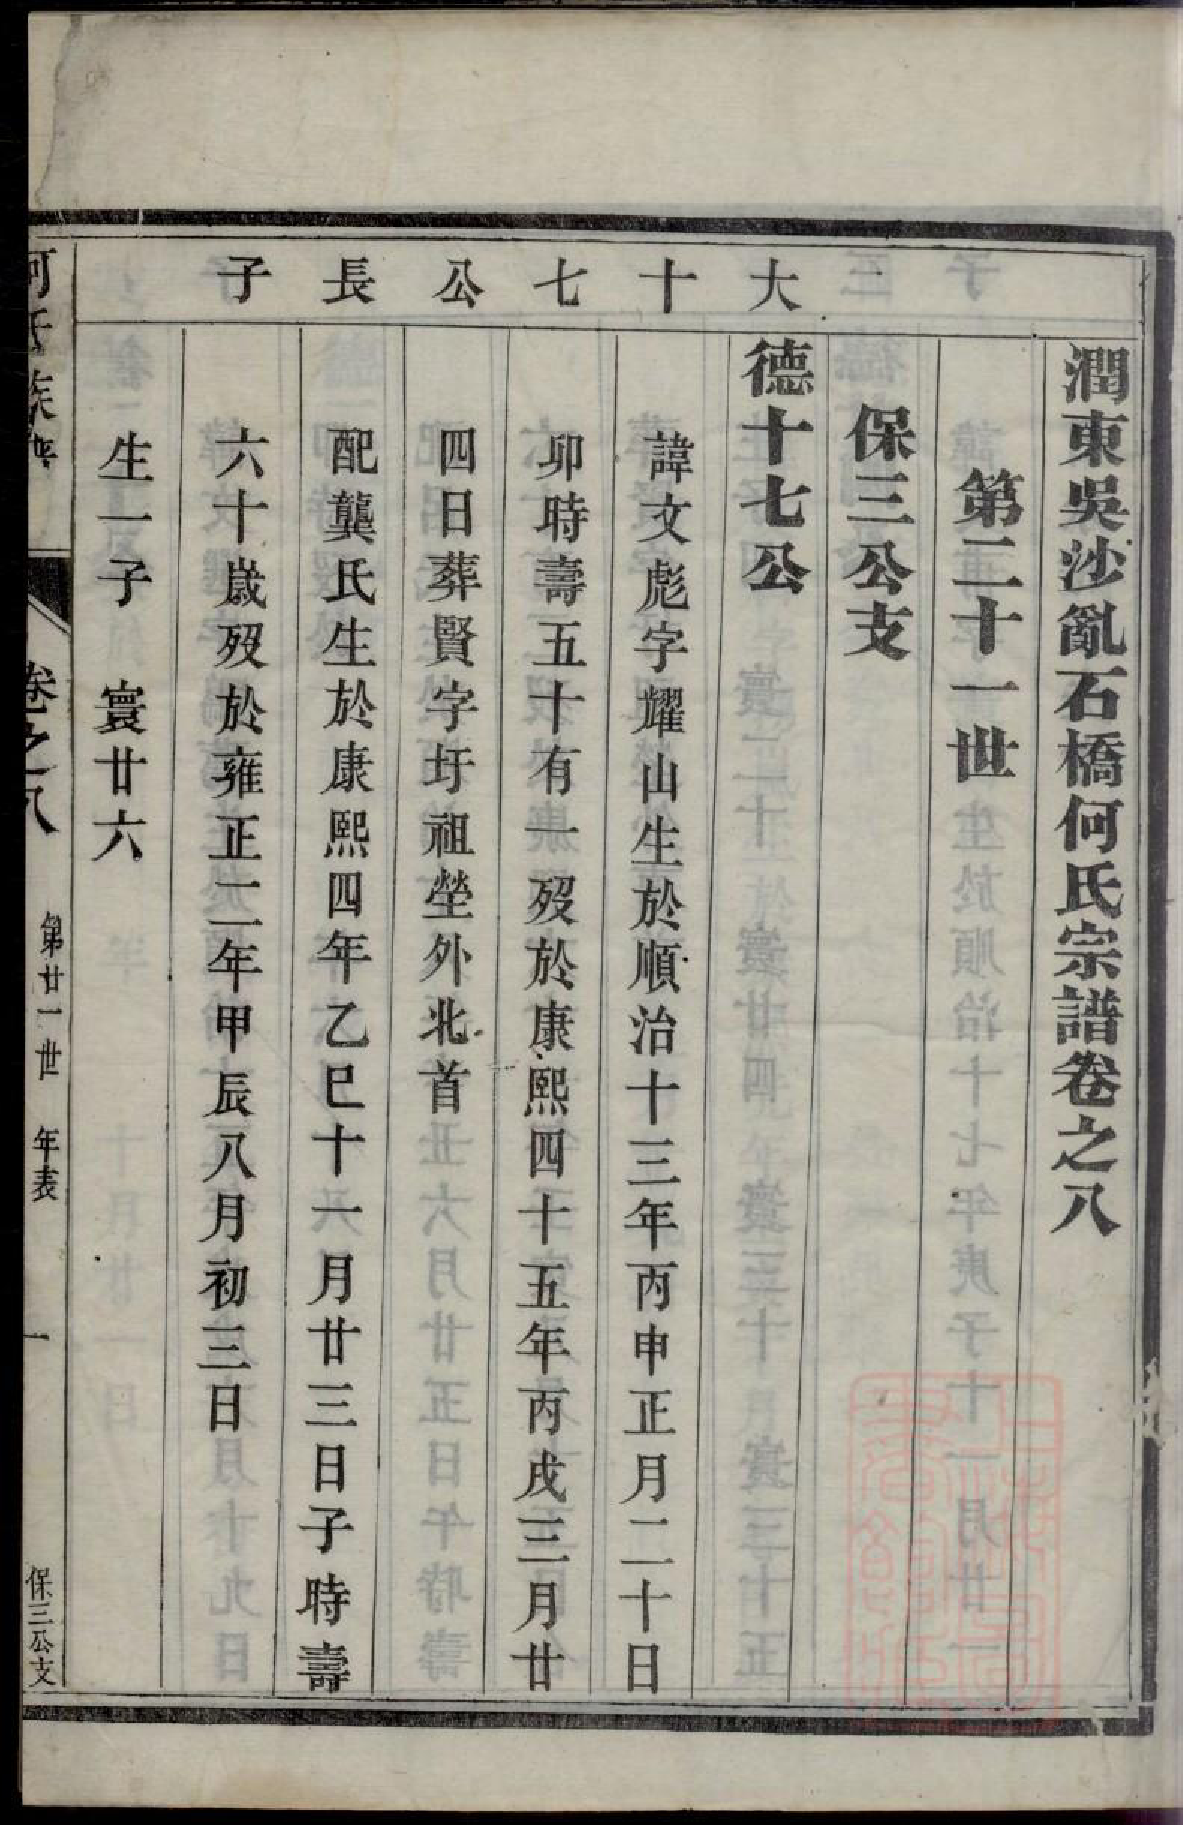 潤東吳沙亂石橋何氏宗譜卷之八
第二十一世
保三公支
大十七公長子
德十七公
諱文彪字耀山生於順治十三年丙申正月二十日
卯時壽五十有一歿於康熙四十五年丙戌三月廿
四日葬賢字圩祖塋外北首
配龔氏生於康熙四年乙巳十一月廿三日子時壽
六十歲歿於雍正二年甲辰八月初三日
生一子 寰廿六
何氏族譜
卷之八
第廿一世 年表
一
保三公支